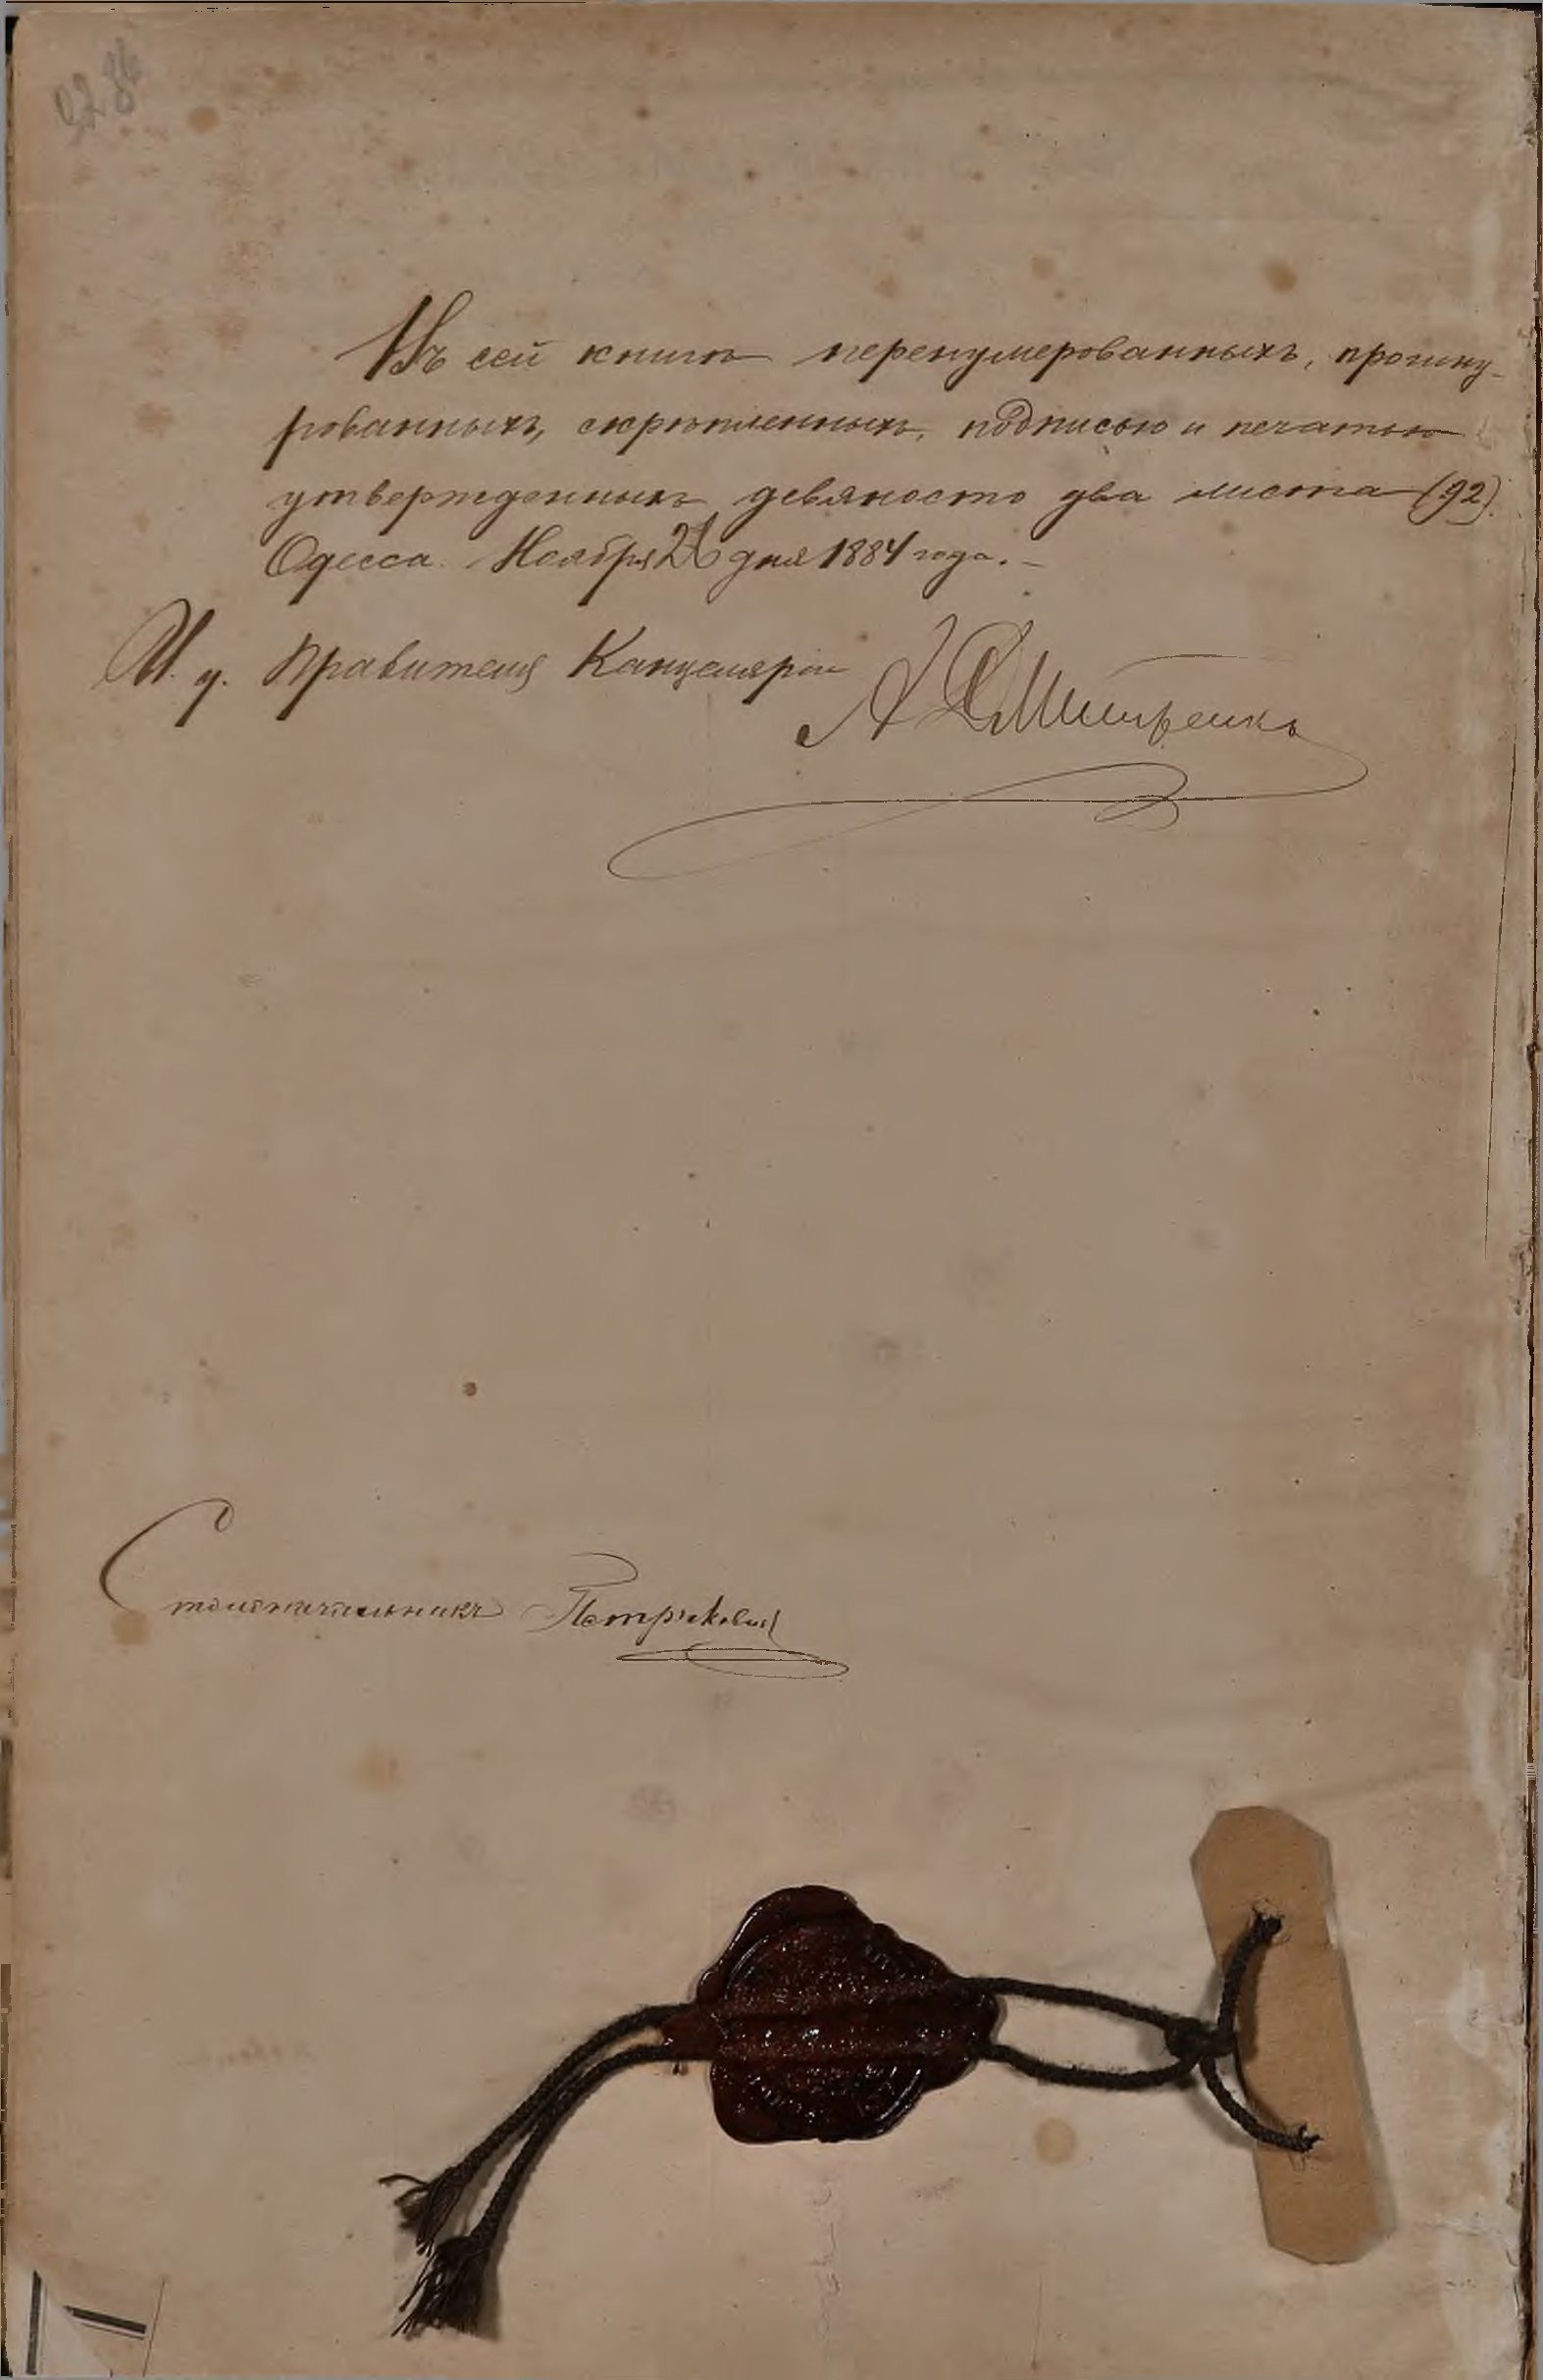 Въ сей книгѣ перенумерованныхъ, прошну-
рованныхъ, скрѣпленныхъ, подписью и печатью
утвержденныхъ девяносто два листа (92).
Одесса. Ноября 26 дня 1884 года.
И. д. Правителя Канцеляріи А Дмитренко
Столоначальникъ